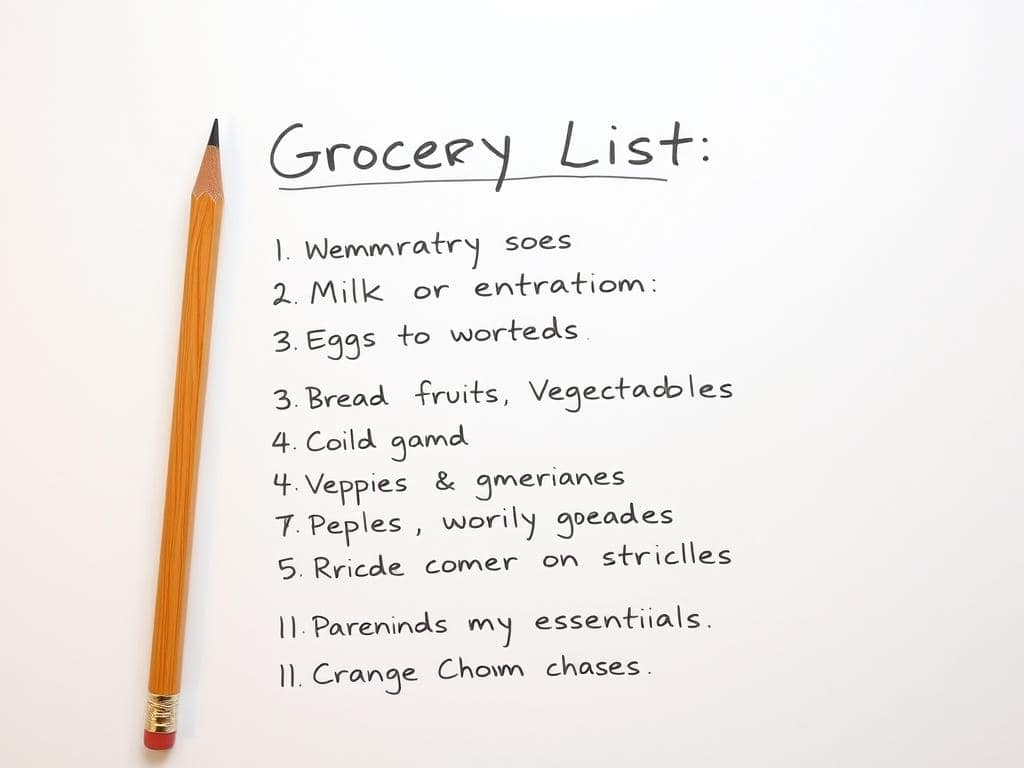 Grocery List:
1. Wemmratry soes
2. Milk or entratiom:
3. Eggs to worteds.
3. Bread fruits, Vegectadbles
4. Coild gamd
4. Veppies & gmerianes
7. Peples, worily goeades
5. Rricde comer on striclles
11. Pareninds my essentiials.
11. Crange Chowm chases.